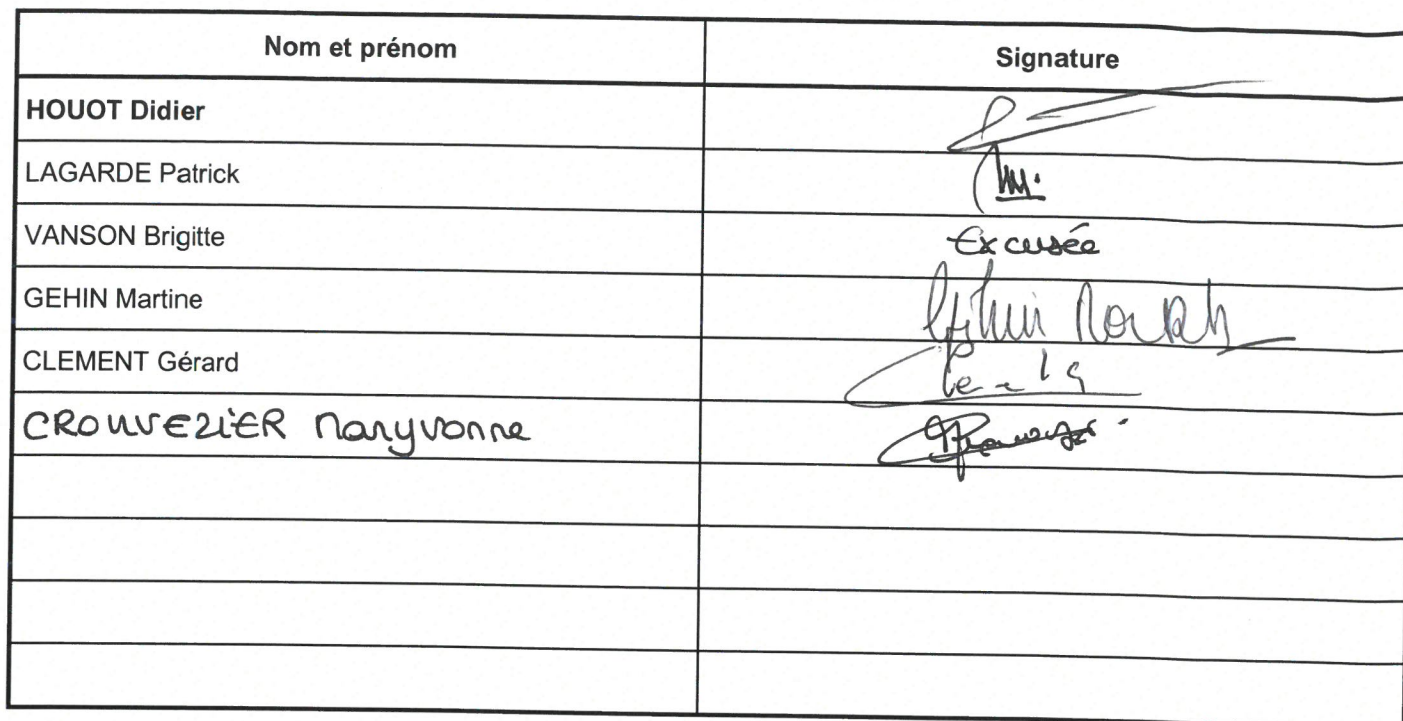 Nom et prénom Signature
HOUOT Didier
LAGARDE Patrick
VANSON Brigitte Excusée
GEHIN Martine
CLEMENT Gérard
CROUVEZIER Maryvonne